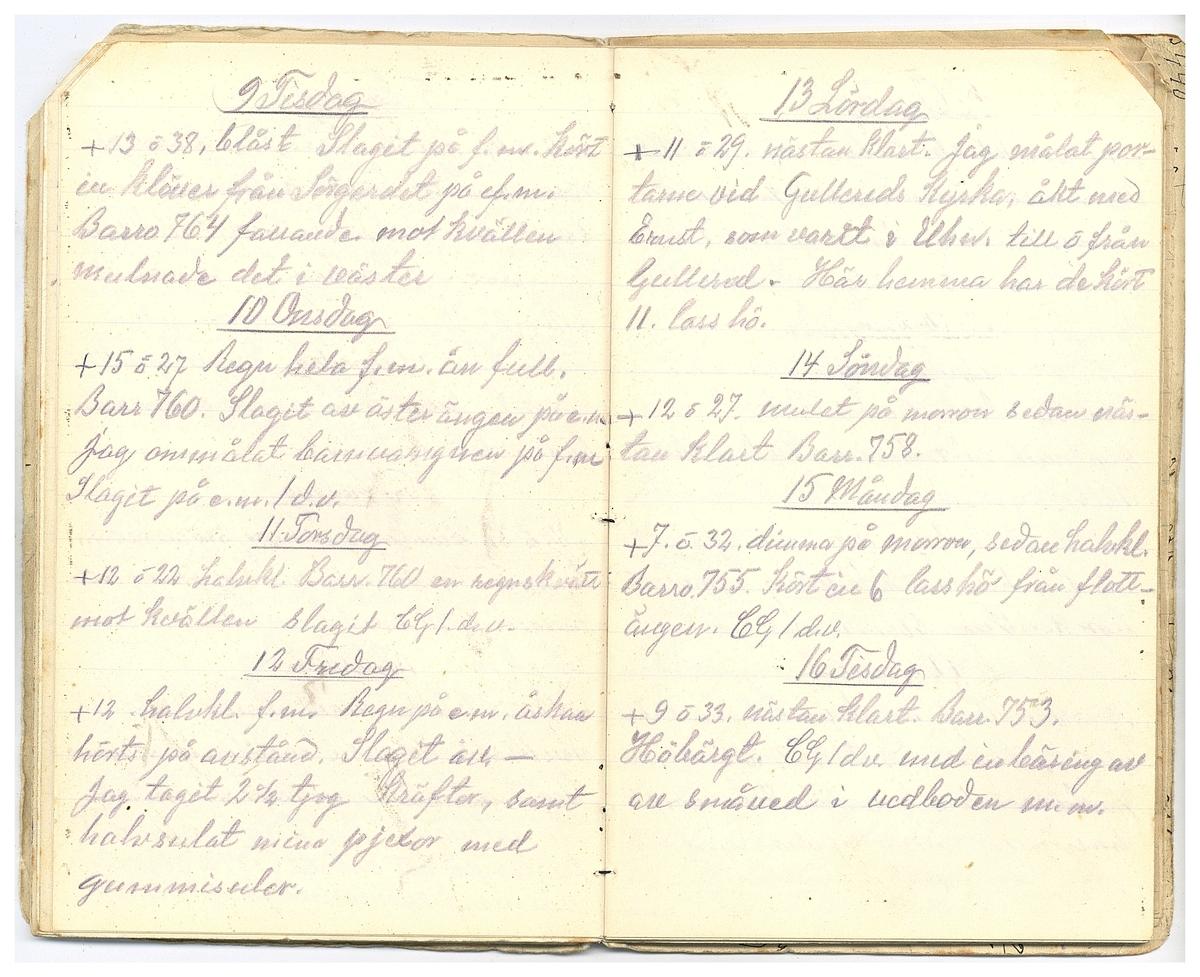 9 Tisdag
+13 ö 38, blåst Slaget på f.m. kört
in klöver från Sörgerdet på ef.m.
Barro 764 fallande. mot kvällen
mulnade det i väster
10 Onsdag
+15 ö 27 Regn hela f.m. än full.
Barr 760. Slaget av öster ängen på e.m.
Jag ommålat barnvangnen på f.m
Slagit på e.m. 1 d.v.
11 Torsdag
+12 ö 22 halvkl. Barr. 760 en regnskvätt
mot kvällen slagit CG 1.d.v.
12 Fredag
+12 halvkl. f.m. Regn på e.m. åskan
hörts på avstånd. Slaget äv. —
Jag taget 2½ tjog kräftor, samt
halvsulat mina pjexor med
gummisulor.
13 Lördag
+11 ö 29. nästan klart. Jag målat por-
tarne vid Gullereds Kyrka, åkt med
Ernst, som varit i Uhn. till ö från
Gullered. Här hemma har de kört
11. lass hö.
14 Söndag
+12 ö 27. mulet på morron sedan näs-
tan klart Barr. 758.
15 Måndag
+7. ö. 32. dimma på morron, sedan halvkl.
Barro. 755. Kört in 6 lass hö från flott-
ängen. CG 1 d.v.
16 Tisdag
+9 ö 33. nästan klart. Barr. 753.
Höbärgt. CG 1 d.v. med inbäring av
av småved i vedboden m.m.